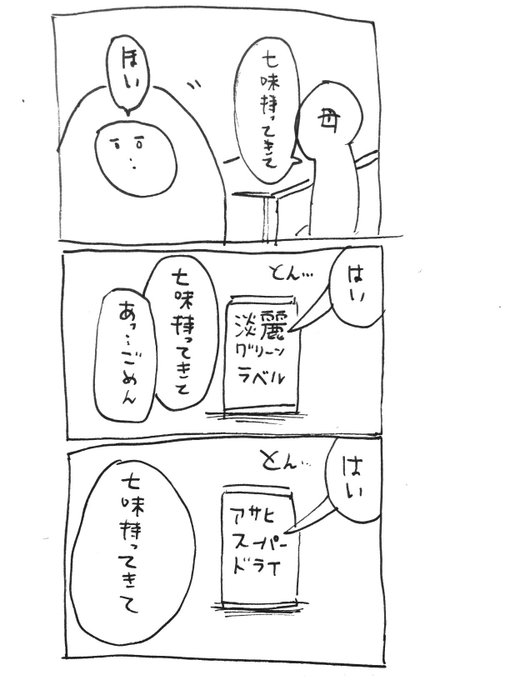 母
七味持ってきて
ほい
はい
とん…
淡麗
グリーン
ラベル
七味持ってきて
あっ…ごめん
はい
とん…
アサヒ
スーパー
ドライ
七味持ってきて